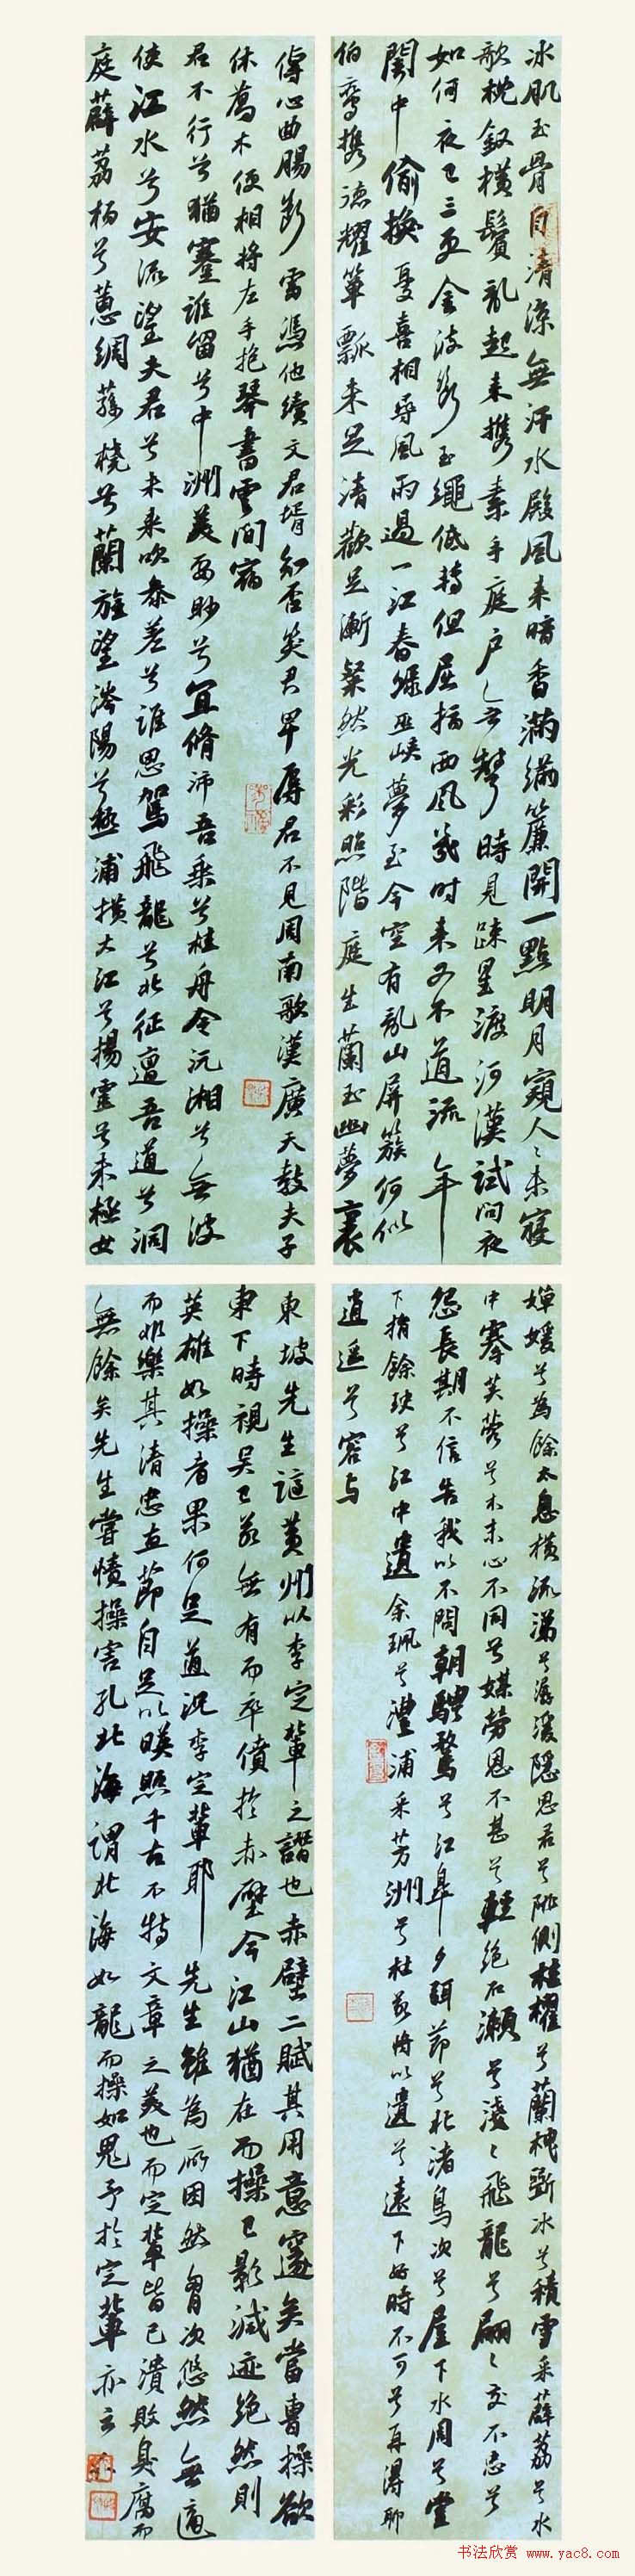 冰肌玉骨自清涼無汗水殿風來暗香滿繡簾開一點明月窺人人未寢
欹枕釵橫鬢亂起來攜素手庭戶無聲時見疎星渡河漢試問夜
如何夜已三更金波淡玉繩低轉但屈指西風幾時來又不道流年
闇中偷換憂喜相尋風雨過一江春綠巫峽夢至今空有亂山屏簇何似
伯鸞攜德耀簞瓢未足清歡足漸粲然光彩照階庭生蘭玉幽夢裏
傳心曲腸斷處憑他續文君壻知否笑君卑辱君不見周南歌漢廣天教夫子
休喬木便相將左手抱琴書雲間宿
君不行兮猶蹇誰留兮中洲美要眇兮宜脩沛吾乘兮桂舟令沅湘兮無波
使江水兮安流望夫君兮未來吹參差兮誰思駕飛龍兮北征邅吾道兮洞
庭薜荔柏兮蕙綢蓀橈兮蘭旌望涔陽兮極浦橫大江兮揚靈兮未極女
嬋媛兮為餘太息橫流涕兮潺湲隱思君兮陫側桂櫂兮蘭枻斲冰兮積雪采薜荔兮水
中搴芙蓉兮木末心不同兮媒勞恩不甚兮輕絕石瀨兮淺淺飛龍兮翩翩交不忠兮
怨長期不信告我以不閒朝騁騖兮江皋夕弭節兮北渚鳥次兮屋下水周兮堂
下捐餘玦兮江中遺余珮兮澧浦采芳洲兮杜若將以遺兮遠下好時不可兮再得聊
逍遙兮容與
東坡先生謫黃州以李定輩之譖也赤壁二賦其用意邃矣當曹操欲
東下時視吳已若無有而卒債於赤壁今江山猶在而操已影滅迹絕然則
英雄如操者果何足道況李定輩耶先生雖為所困然胷次悠然無適
而非樂其清忠直節自足以暎照千古不特文章之美也而定輩皆已潰敗臭腐而
無餘矣先生嘗憤操害孔北海謂北海如龍而操如鬼予於定輩亦云
书法欣赏 www.yac8.com